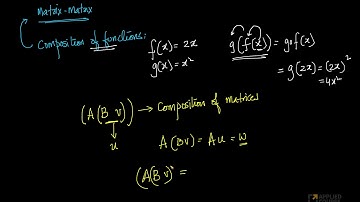 Matrix-Matrix
Composition of functions:
f(x) = 2x
g(x) = x²
g(f(x)) = gof(x)
= g(2x) = (2x)²
= 4x²
(A(B v)) → Composition of matrices
u
A(Bv) = Au = w
(A(Bv)) =
APPLIED